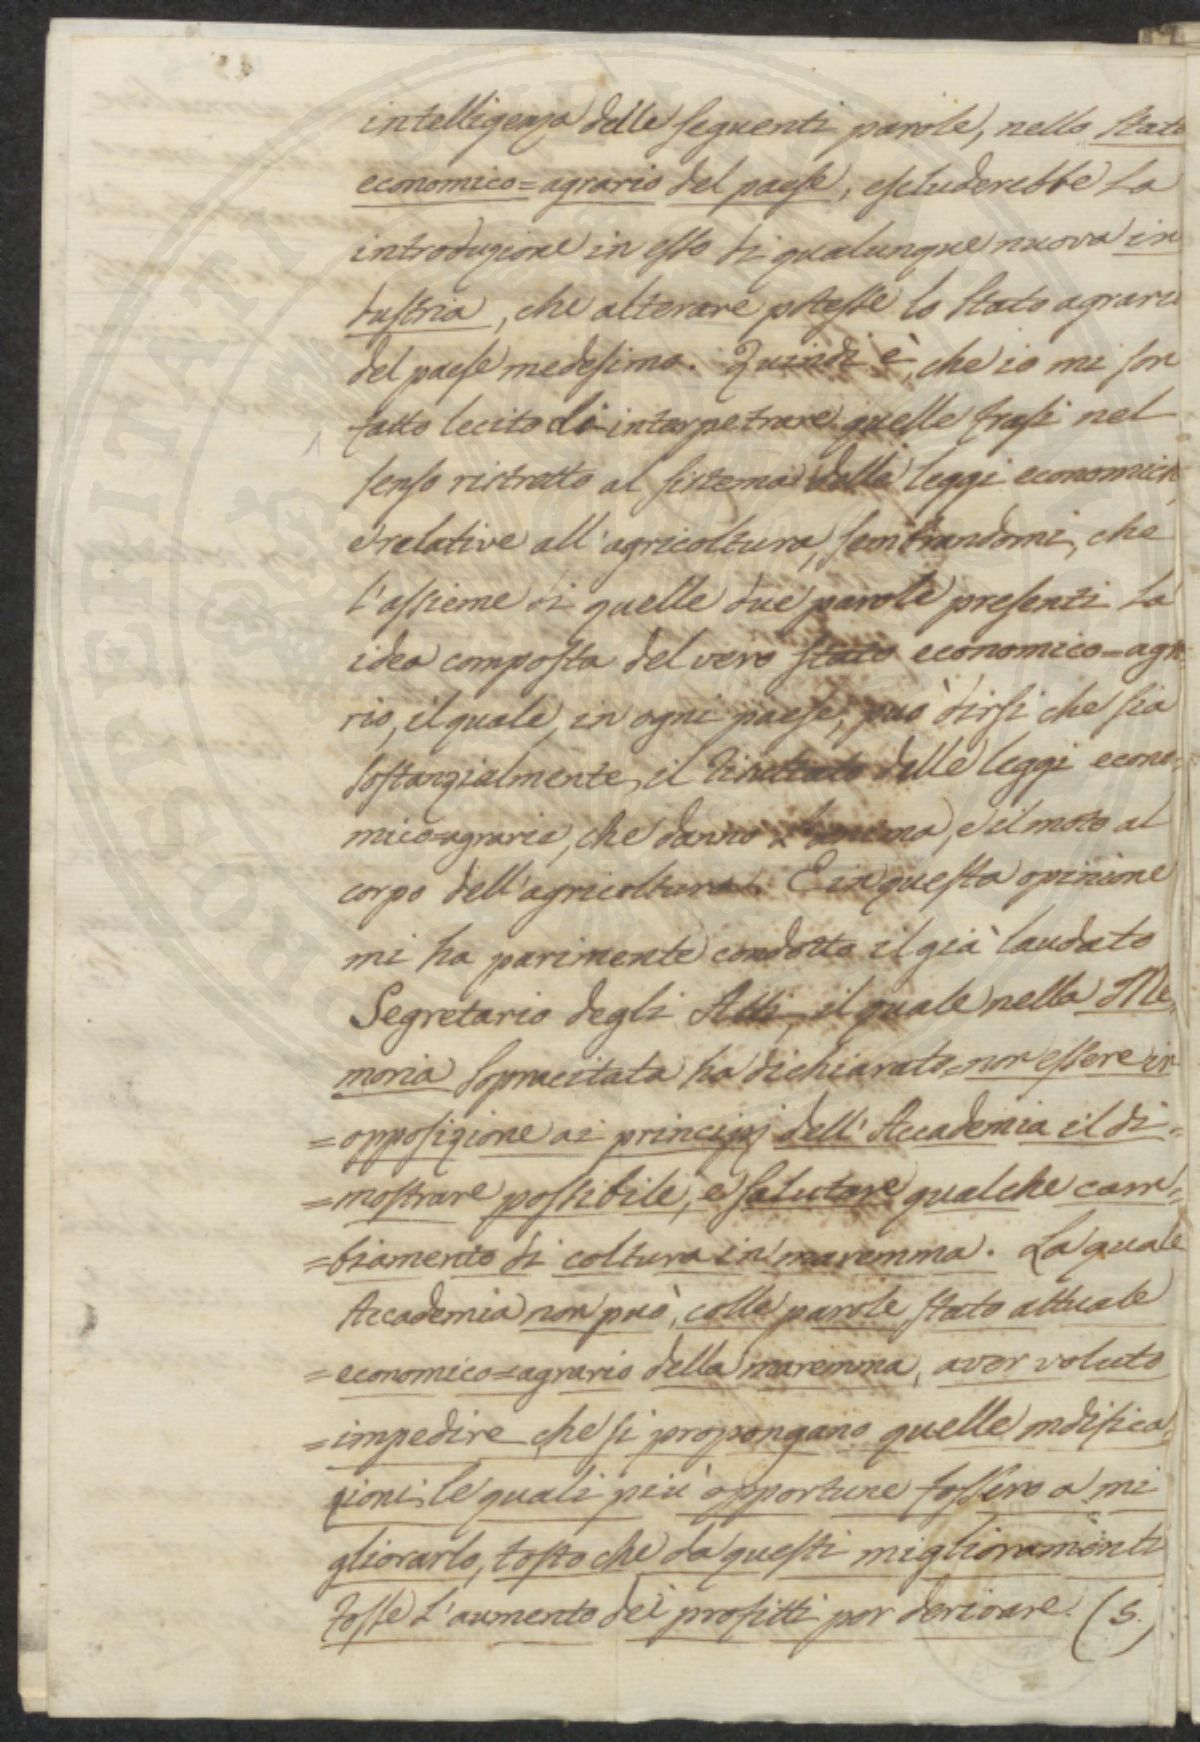 intelligenza delle seguenti parole, nello Stato
economico=agrario del paese, escluderebbe la
introduzione in esso di qualunque nuova in
dustria, che alterare potesse lo Stato agrario
del paese medesimo. Quindi è, che io mi son
fatto lecito di interpetrare quelle frasi nel
senso ristretto al sistema delle leggi economich
e relative all'agricoltura, sembrandomi, che
l'assieme di quelle due parole presenti la
idea composta del vero stato economico=agra
rio, il quale, in ogni paese, può dirsi che sia
sostanzialmente, il risultato delle leggi econo=
mico=agrarie, che danno l'anima, e il moto al
corpo dell'agricoltura. E in questa opinione
mi ha parimente condotto il già laudato
Segretario degli Atti, il quale nella Me
moria sopracitata ha dichiarato=non essere in
=opposizione ai principj dell'Accademia il di=
=mostrare possibile, e salutare qualche cam=
=biamento di coltura in maremma. La quale
Accademia non può, colle parole stato attuale
=economico=agrario della maremma, aver voluto
=impedire che si propongano quelle modifica=
zioni, le quali più opportune fossero a mi
gliorarlo, tosto che da questi miglioramenti
fosse l'aumento dei profitti per derivare. (5.)
PROSPERITATI